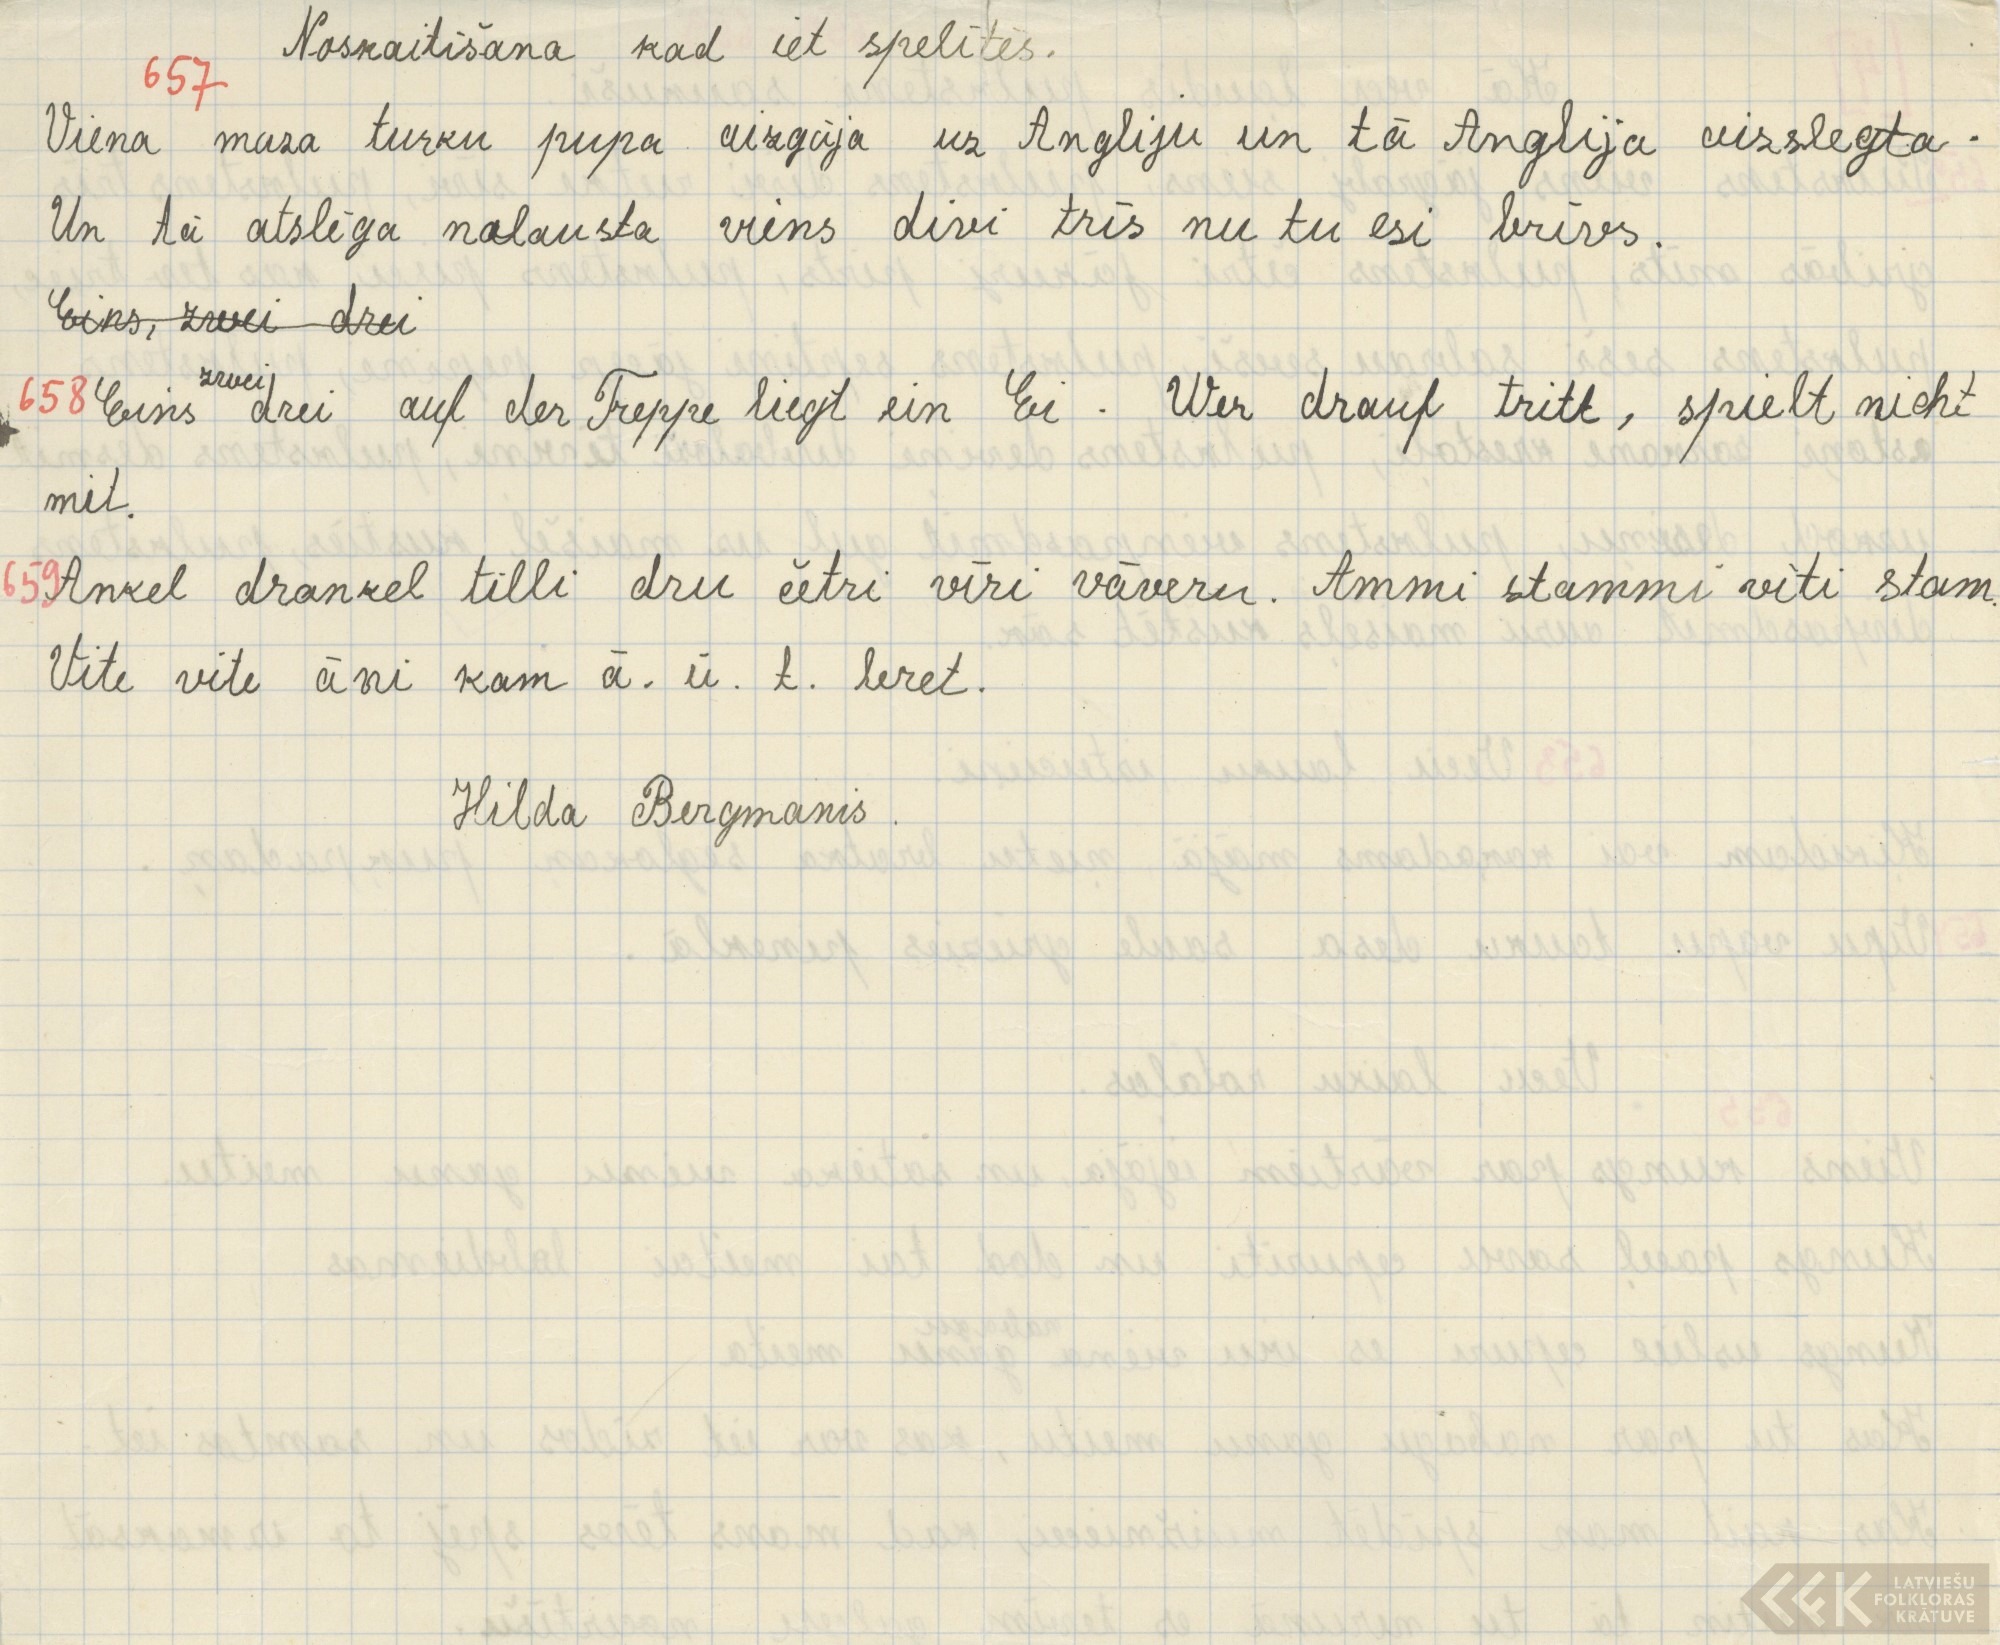 Noskaitišana kad iet spelītēs.
657
Viena maza turku pupa aizgāja uz Angliju un tā Anglija aizslegta.
Un tā atslēga nolausta viens divi trīs nu tu esi brīvs.
Eins, zwei drei
658 Eins zwei drei auf der Treppe liegt ein Ei. Wer drauf tritt, spielt nicht
mit.
659 Ankel drankel tilli dru četri vīri vāveru. Ammi stammi vīti stam.
Vite vite āni kam ā. ū. t. beret.
Hilda Bergmanis.
LATVIEŠU
FOLKLORAS
KRĀTUVE